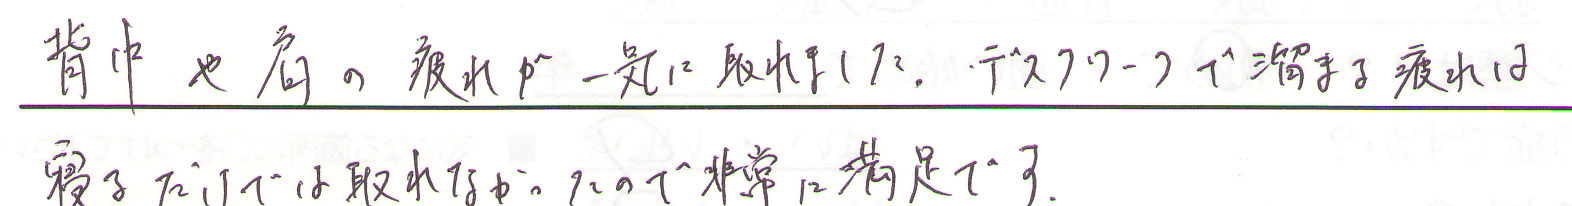 背中や肩の疲れが一気に取れました。デスクワークで溜まる疲れは
寝るだけでは取れなかったので非常に満足です。